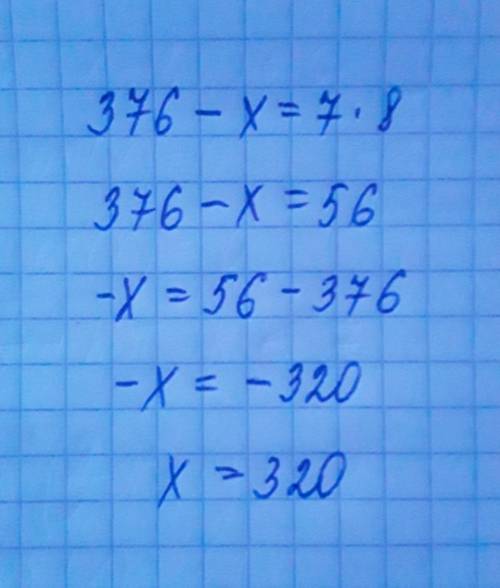 376 - x = 7 · 8
376 - x = 56
-x = 56 - 376
-x = -320
x = 320